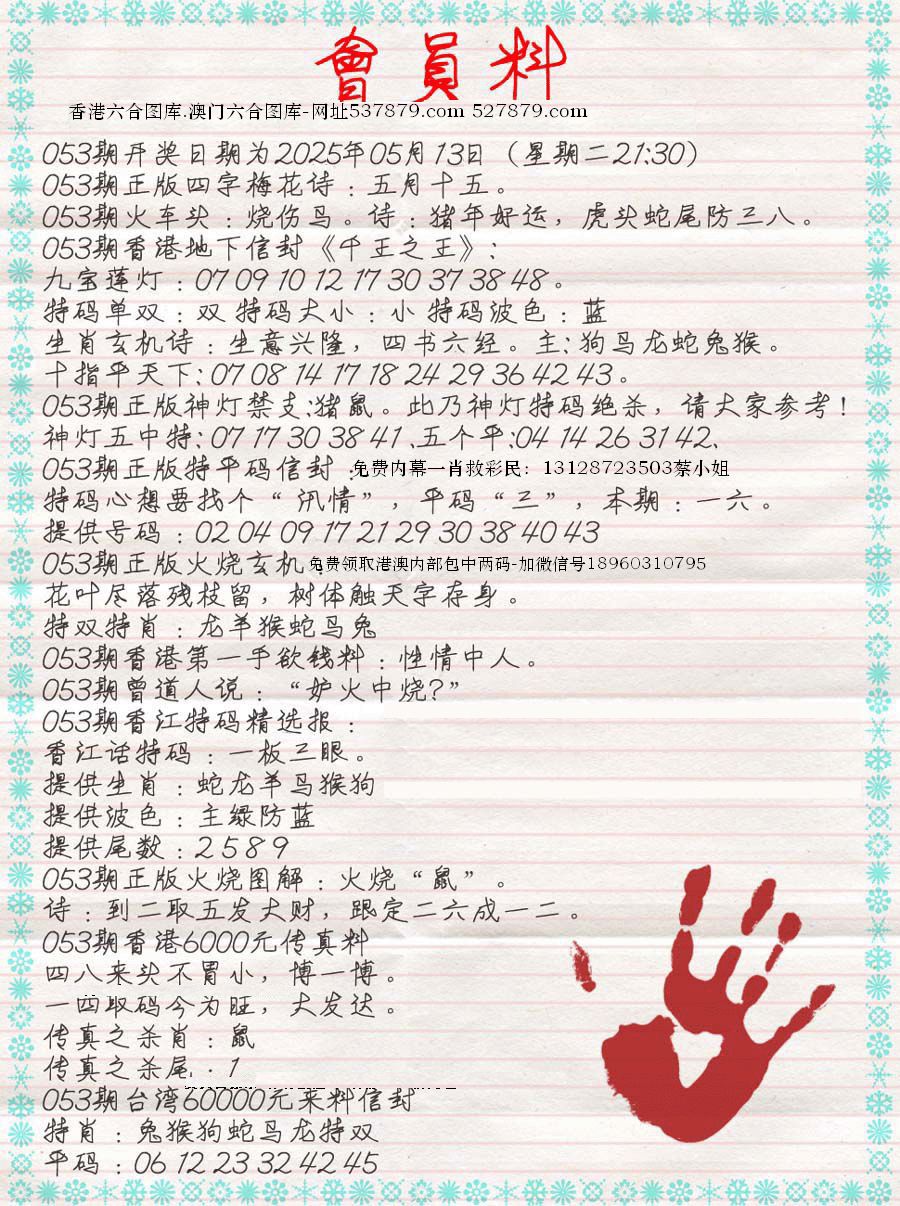 會員料
香港六合图库.澳门六合图库-网址537879.com 527879.com
053期开奖日期为2025年05月13日（星期二21:30）
053期正版四字梅花诗：五月十五。
053期火车头：烧伤鸟。诗：猪年好运，虎头蛇尾防三八。
053期香港地下信封《千王之王》：
九宝莲灯：07 09 10 12 17 30 37 38 48。
特码单双：双 特码大小：小 特码波色：蓝
生肖玄机诗：生意兴隆，四书六经。主:狗马龙蛇兔猴。
十指平天下:07 08 14 17 18 24 29 36 42 43。
053期正版神灯禁支:猪鼠。此乃神灯特码绝杀，请大家参考！
神灯五中特:07 17 30 38 41、五个平:04 14 26 31 42、
053期正版特平码信封：免费内幕一肖救彩民：13128723503蔡小姐
特码心想要找个“汛情”，平码“三”，本期：一六。
提供号码：02 04 09 17 21 29 30 38 40 43
053期正版火烧玄机：免费领取港澳内部包中两码-加微信号18960310795
花叶尽落残枝留，树体触天字存身。
特双特肖：龙羊猴蛇马兔
053期香港第一手欲钱料：性情中人。
053期曾道人说：“妒火中烧?”
053期香江特码精选报：
香江话特码：一板三眼。
提供生肖：蛇龙羊马猴狗
提供波色：主绿防蓝
提供尾数：2 5 8 9
053期正版火烧图解：火烧“鼠”。
诗：到二取五发大财，跟定二六成一二。
053期香港6000元传真料
四八来头不冒小，博一博。
一四取码今为旺，大发达。
传真之杀肖：鼠
传真之杀尾：1
053期台湾60000元来料信封
特肖：兔猴狗蛇马龙特双
平码：06 12 23 32 42 45